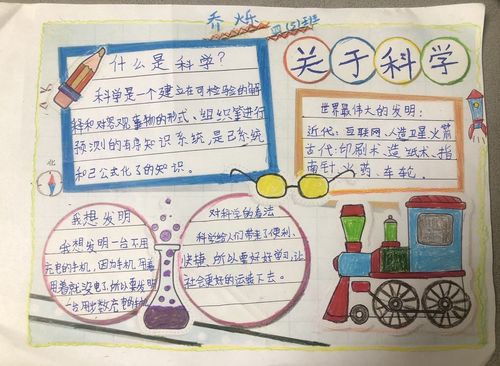 乔烁
四(5)班
关于科学
什么是科学?
科学是一个建立在可检验的解
释和对客观事物的形式、组织等进行
预测的有序知识系统,是已系统
和已公式化了的知识。
世界最伟大的发明:
近代:互联网、人造卫星、火箭
古代:印刷术、造纸术、指
南针、火药、车轮。
我想发明
我想发明一台不用
充电的手机,因为手机用着
用着就没电了,所以要发明
一台用步数充电的手机
对科学的看法
科学给人们带来了便利、
快捷,所以要好好学习,让
社会更好的运转下去。
北